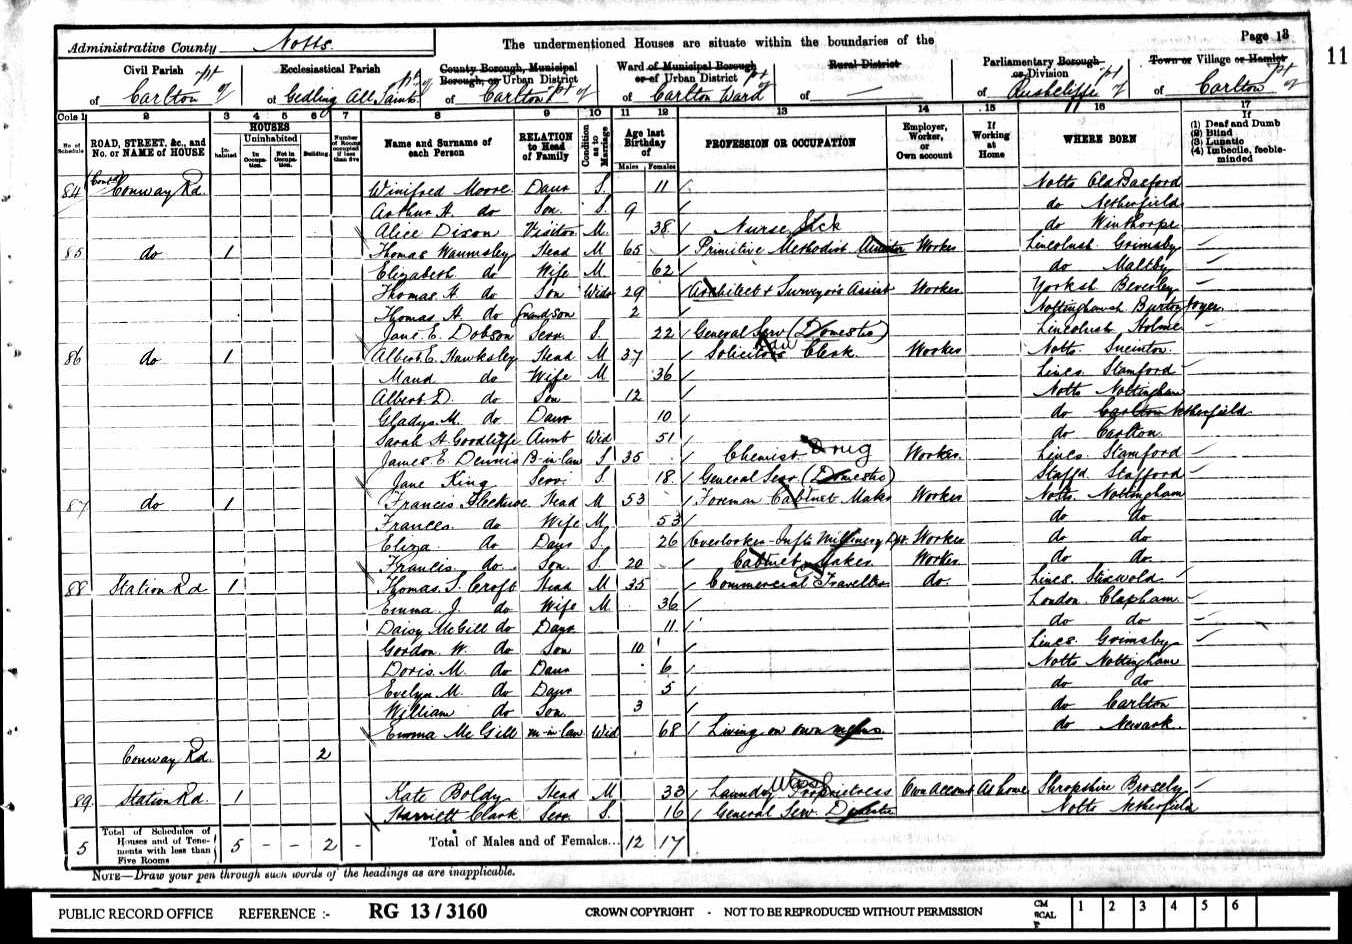 Administrative County Notts.
The undermentioned Houses are situate within the boundaries of the
Page 13
11
Civil Parish
of Carlton pt of
Ecclesiastical Parish
of Gedling All Saints pt of
County Borough, Municipal
Borough, or Urban District
of Carlton pt of
Ward of Municipal Borough
or of Urban District
of Carlton Ward pt of
Rural District
of —
Parliamentary Borough
or Division
of Rushcliffe pt of
Town or Village or Hamlet
of Carlton pt of
Cols 1 2 3 4 5 6 7 8 9 10 11 12 13 14 15 16 17
No. of Schedule
ROAD, STREET, &c., and No. or NAME of HOUSE
HOUSES
Inhabited
Uninhabited
In Occupation.
Not in Occupa.
Building.
Number of Rooms occupied if less than five
Name and Surname of each Person
RELATION to Head of Family
Condition as to Marriage
Age last Birthday of
Males Females
PROFESSION OR OCCUPATION
Employer, Worker, or Own account
If Working at Home
WHERE BORN
If
(1) Deaf and Dumb
(2) Blind
(3) Lunatic
(4) Imbecile, feeble-minded
84 (Contd) Conway Rd. Winifred Moore Daur S. 11 Notts Old Basford
Arthur H. do Son. S. 9 do Netherfield
Alice Dixon Visitor M. 38 Nurse Sick do Winthorpe
85 do 1 Thomas Waumsley Head M 65 Primitive Methodist Minister Worker Lincolnsh Grimsby
Elizabeth do Wife M 62 do Maltby
Thomas H. do Son Widr 29 Architect & Surveyors Assist Worker Yorksh Beverley
Thomas H. do Grandson 2 Nottinghamsh Burton Joyce
Jane E. Dobson Serv. S. 22 General Serv (Domestic) Lincolnsh Holme
86 do 1 Albert E. Hawksley Head M 37 Solicitors Law Clerk. Worker Notts. Sneinton.
Maud do Wife M 36 Lincs. Stamford
Albert D. do Son 12 Notts Nottingham
Gladys M. do Daur 10 do Carlton Netherfield
Sarah H. Goodliffe Aunt Wid 51 do Carlton.
James E. Dennis B-in-law S 35 Chemist Drug Worker. Lincs. Stamford
Jane King Serv. S. 18 General Serv (Domestic) Staffd. Stafford
87 do 1 Francis Head M 53 Foreman Cabinet Maker Worker Notts. Nottingham
Frances. do Wife M 53 do do
Eliza. do Daur S. 26 Overlooker- Millinery Dpt. Worker do do
Francis do Son S. 20 Cabinet Maker. Worker do do
88 Station Rd 1 Thomas S. Croft Head M 35 Commercial Traveller do. Lincs. Stixwold
Emma J. do Wife M 36 London. Clapham.
Daisy McGill do Daur 11 do do
Gordon W. do Son 10 Lincs. Grimsby
Doris M. do Daur 6 Notts Nottingham
Evelyn M. do Daur 5 do do
William do Son. 3 do Carlton
Emma McGill m-in-law Wid 68 Living on own means. do Newark.
Conway Rd. 2
89 Station Rd. 1 Kate Boldy Head M 33 Laundry Wash Proprietress Own Account At home Shropshire Broseley
Harriett Clark Serv. S. 16 General Serv. Domestic Notts Netherfield
5 Total of Schedules of Houses and of Tenements with less than Five Rooms 5 – – 2 – Total of Males and of Females... 12 17
NOTE—Draw your pen through such words of the headings as are inapplicable.
PUBLIC RECORD OFFICE REFERENCE :- RG 13/3160 CROWN COPYRIGHT - NOT TO BE REPRODUCED WITHOUT PERMISSION
CM SCALE 1 2 3 4 5 6